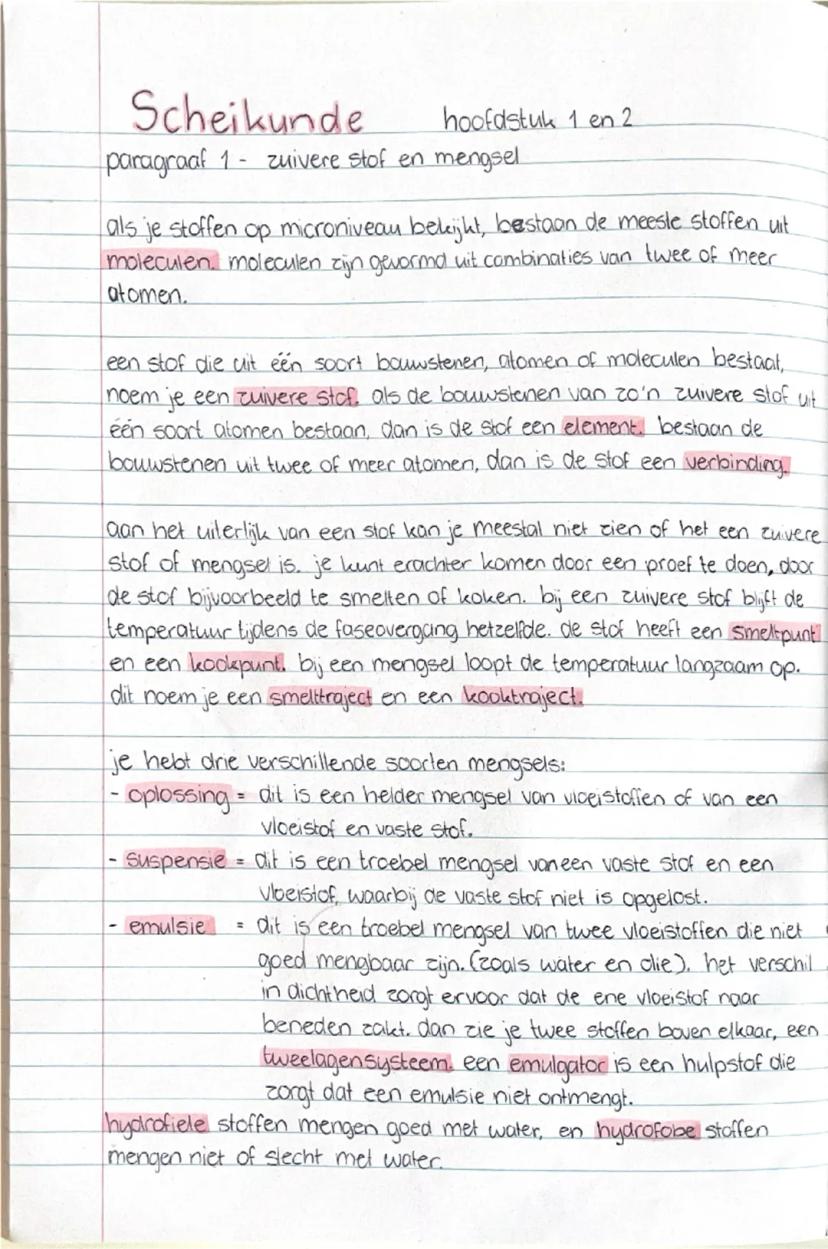 Scheikunde hoofdstuk 1 en 2
paragraaf 1 - zuivere stof en mengsel
als je stoffen op microniveau bekijkt, bestaan de meeste stoffen uit
moleculen. moleculen zijn gevormd uit combinaties van twee of meer
atomen.
een stof die uit één soort bouwstenen, atomen of moleculen bestaat,
noem je een zuivere stof. als de bouwstenen van zo'n zuivere stof uit
één soort atomen bestaan, dan is de stof een element. bestaan de
bouwstenen uit twee of meer atomen, dan is de stof een verbinding.
aan het uiterlijk van een stof kan je meestal niet zien of het een zuivere
stof of mengsel is. je kunt erachter komen door een proef te doen, door
de stof bijvoorbeeld te smelten of koken. bij een zuivere stof blijft de
temperatuur tijdens de faseovergang hetzelfde. de stof heeft een smeltpunt
en een kookpunt. bij een mengsel loopt de temperatuur langzaam op.
dit noem je een smelttraject en een kooktraject.
je hebt drie verschillende soorten mengsels:
- oplossing = dit is een helder mengsel van vloeistoffen of van een
vloeistof en vaste stof.
- suspensie = dit is een troebel mengsel van een vaste stof en een
vloeistof, waarbij de vaste stof niet is opgelost.
- emulsie = dit is een troebel mengsel van twee vloeistoffen die niet
goed mengbaar zijn. (zoals water en olie). het verschil
in dichtheid zorgt ervoor dat de ene vloeistof naar
beneden zakt. dan zie je twee stoffen boven elkaar, een
tweelagensysteem. een emulgator is een hulpstof die
zorgt dat een emulsie niet ontmengt.
hydrofiele stoffen mengen goed met water, en hydrofobe stoffen
mengen niet of slecht met water.